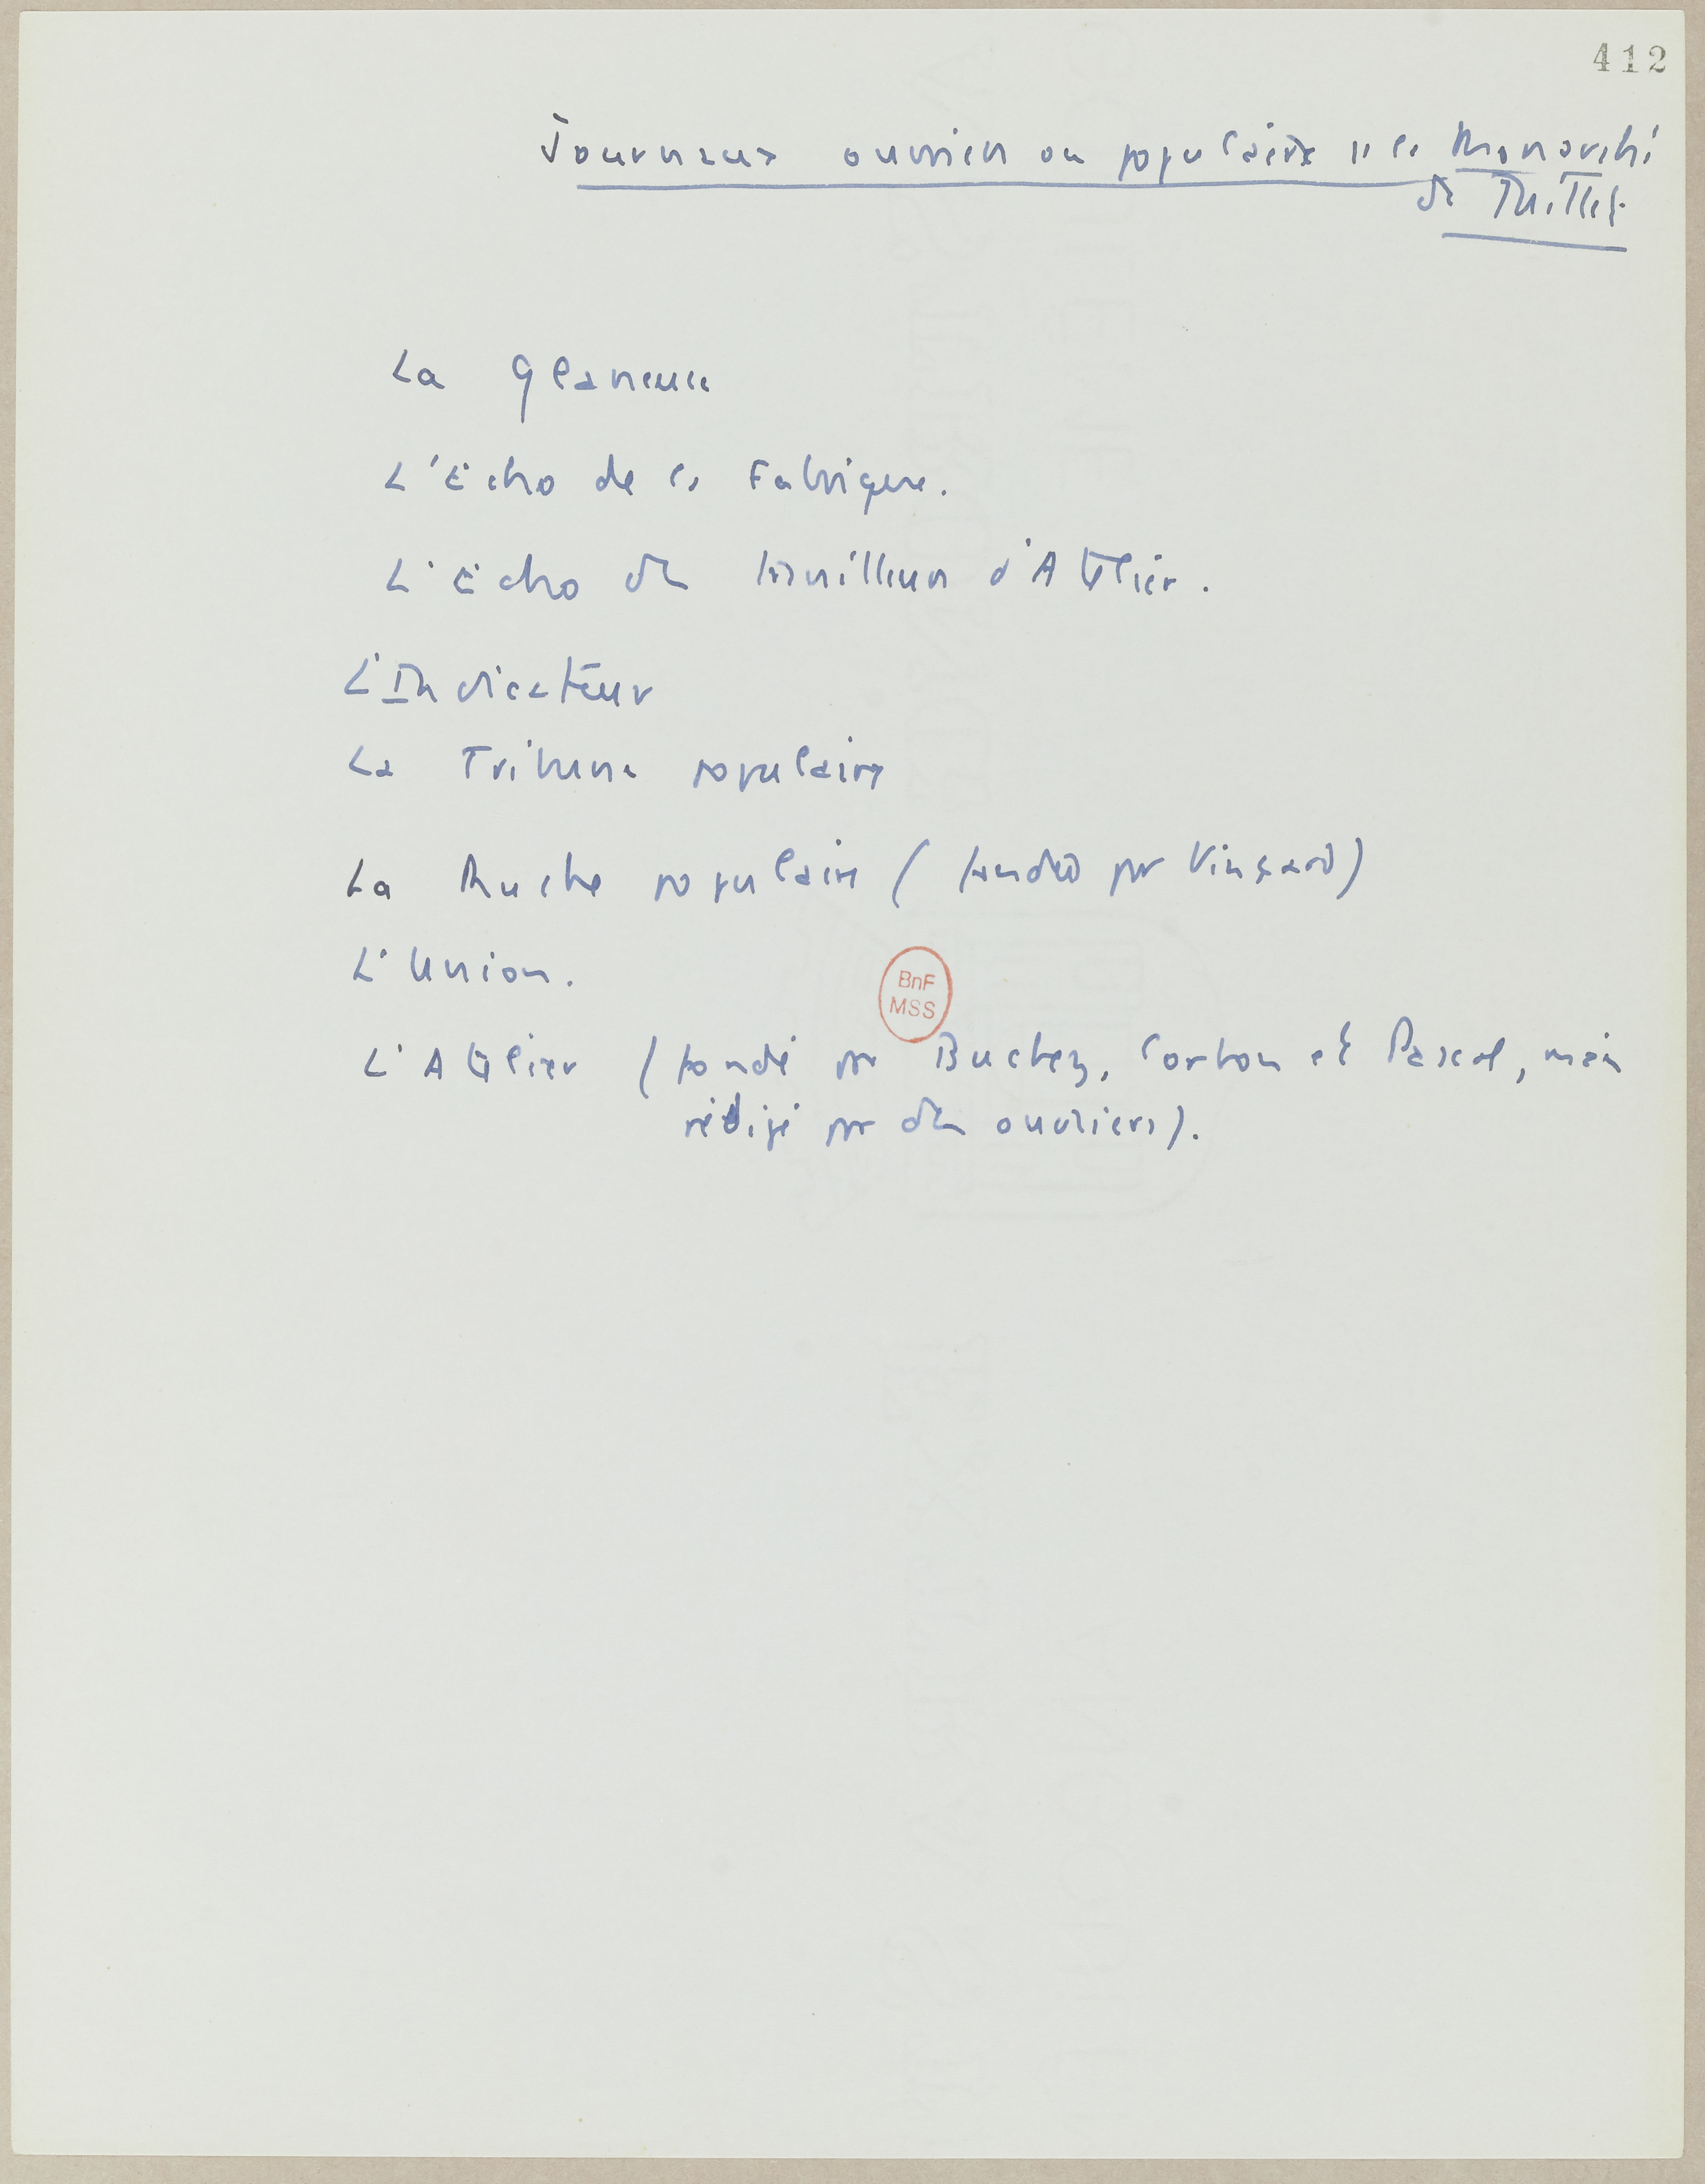 412
Journaux ouvriers ou populaires ss la Monarchie
de Juillet
La Glaneuse
L'Echo de la Fabrique.
L'Echo des travailleurs d'Atelier.
L'Indicateur
La Tribune populaire
La Ruche populaire (fondée par Vinçard)
L'Union.
BnF
MSS
L'Atelier (fondé par Buchez, Corbon et Pascal, mais
rédigé par des ouvriers).